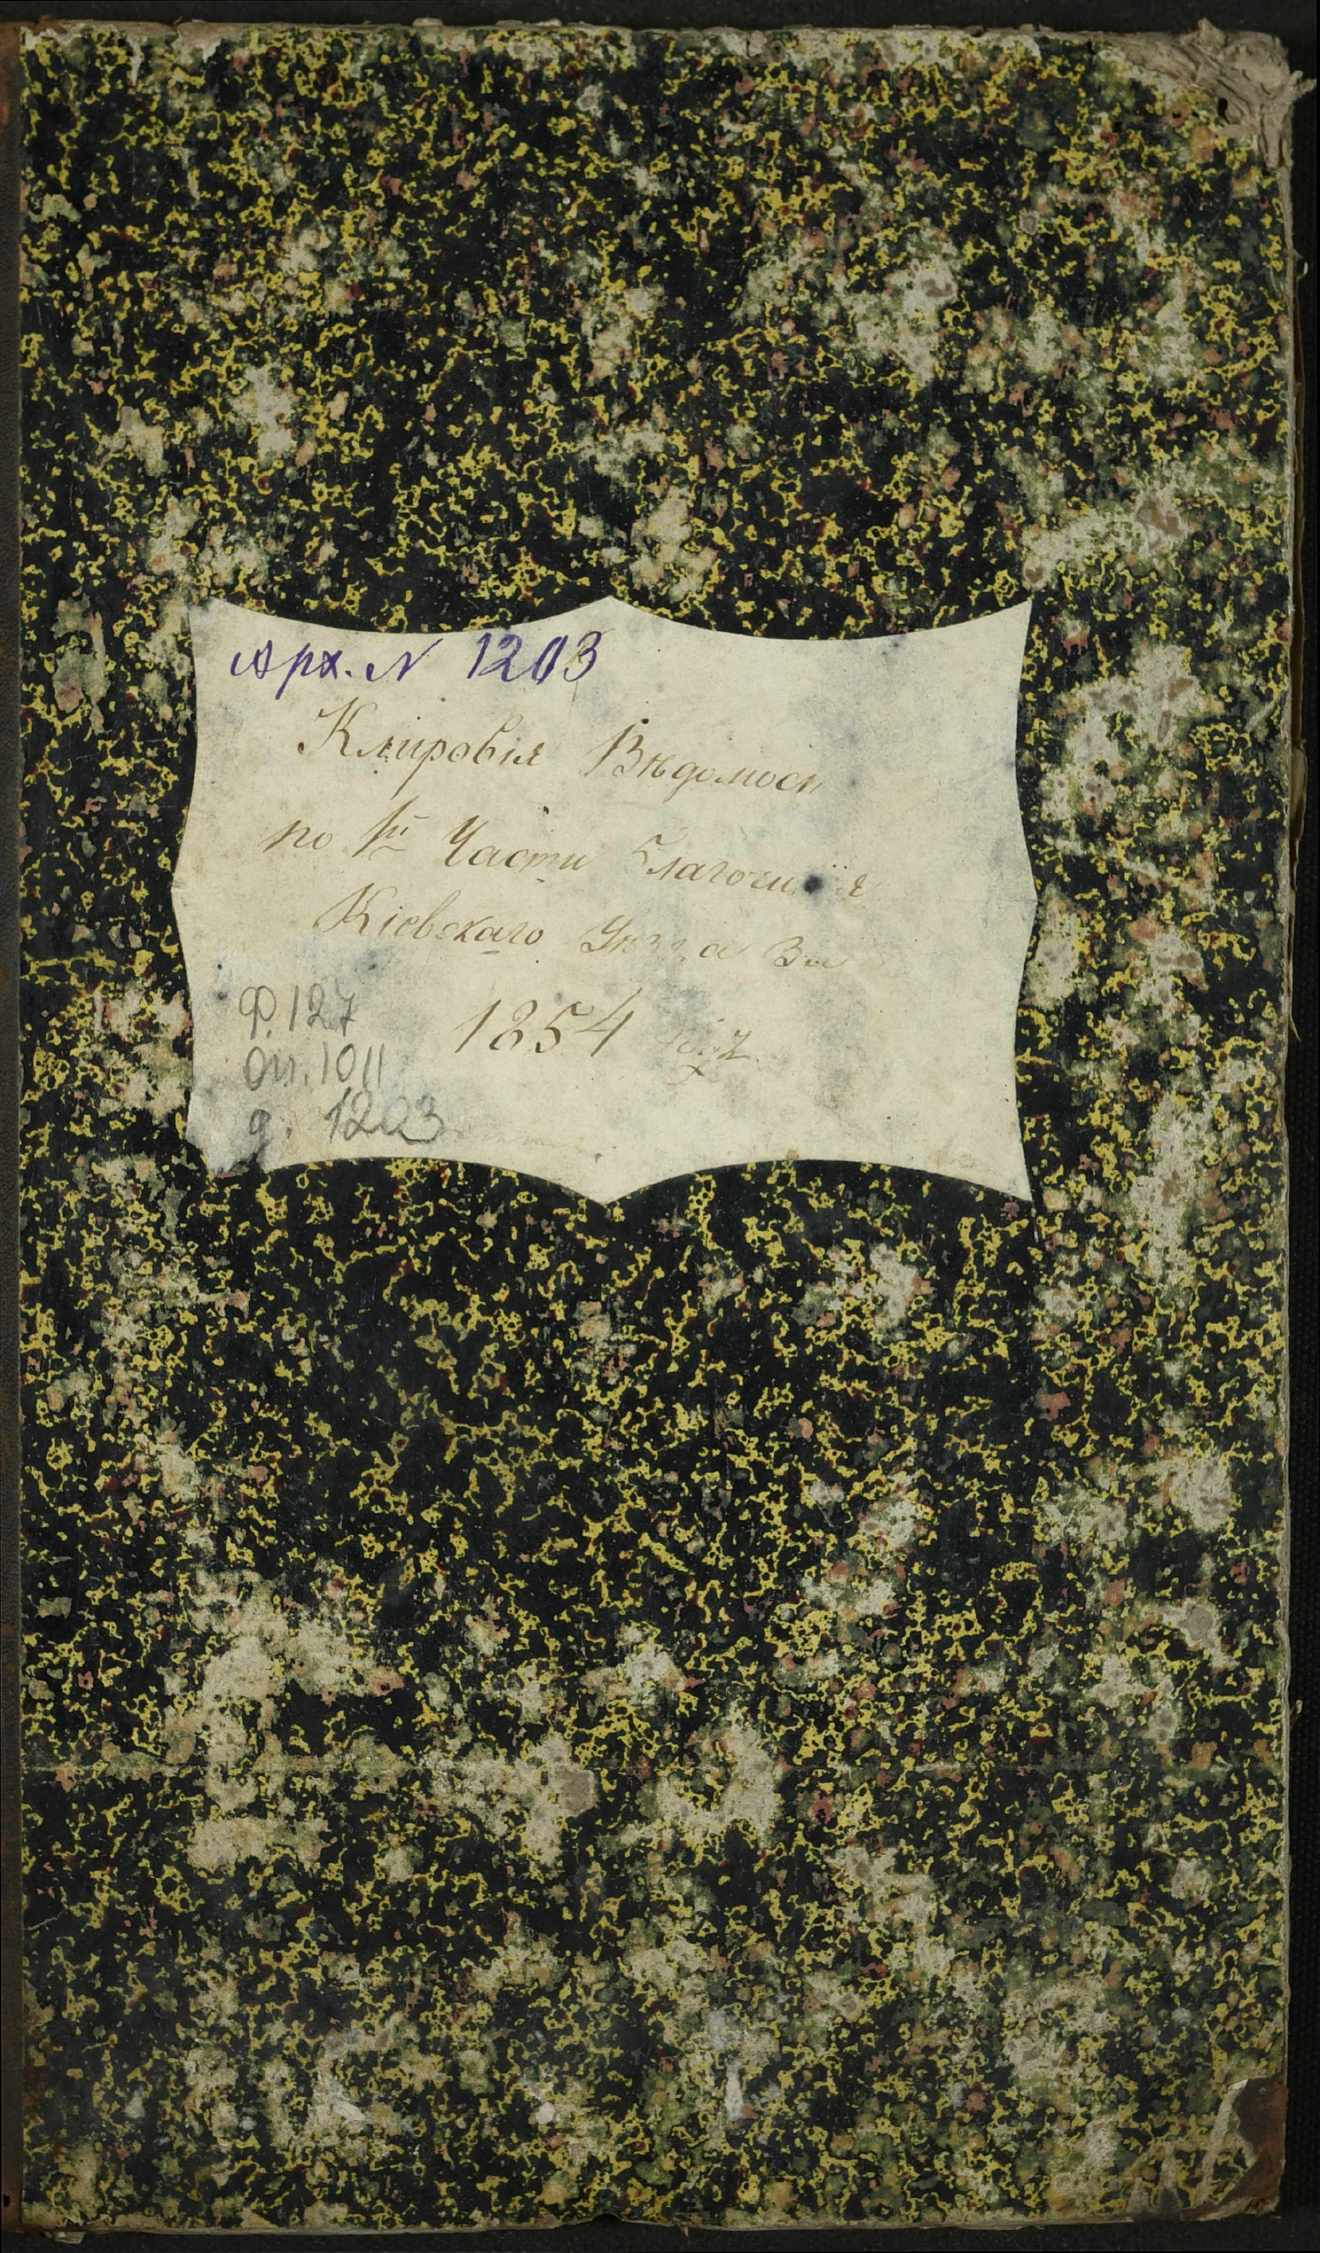 Арх. N 1203
Клировія Вѣдомости
по 1й Части Благочинія
Кіевскаго Уѣзда за
1854 годъ
Ф. 127
оп. 1011
д. 1203